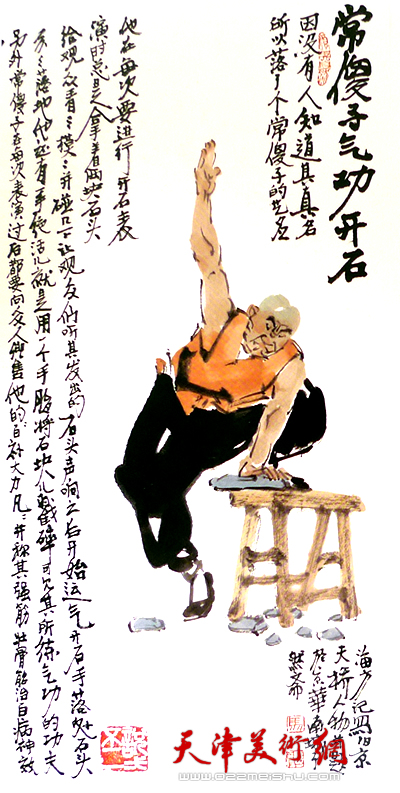 常傻子气功开石
因没有人知道其真名
所以落了个常傻子的艺名
他在每次要进行开石表
演时总是拿着两块石头
给观众看之模之并碰几下让观众们听其发出的石头声响之后开始运气开石手落处石头
应之落地他还有手绝活儿就是用一个手指将石块儿戳碎可见其所练气功的功夫
另外常傻子在每次表演过后都要向众人兜售他的百补大力凡并称其强筋壮骨能治百病神效
海方记写旧京
天桥人物
于京华南城
天津美術網
www.022meishu.com